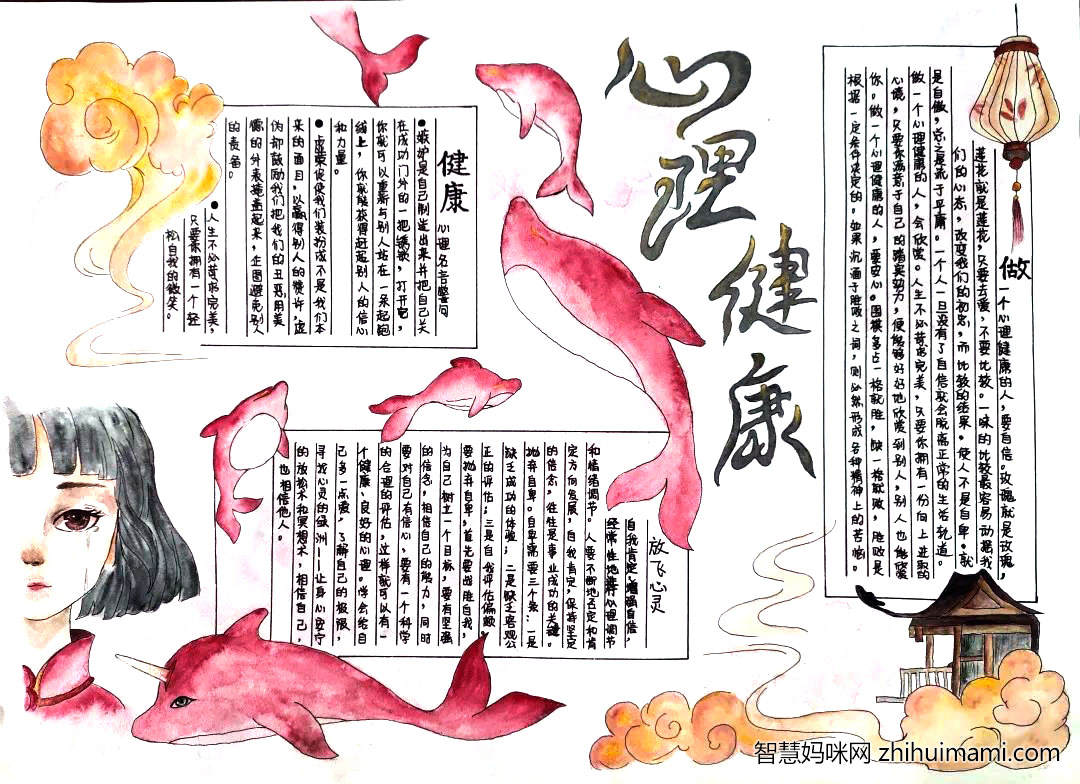 心理健康
做一个心理健康的人，要自信。玫瑰就是玫瑰，
莲花就是莲花，只要去爱，不要比较。一味的比较最容易动摇我
们的心态，改变我们的初衷，而比较的结果，使人不是自卑，就
是自傲，总之是流于平庸。一个人一旦没有了自信就会脱离正常的生活轨道。
做一个心理健康的人，会欣赏。人生不必苛求完美，只要你拥有一份向上进取的
心境，只要你满意于自己的踏实努力，便能够好好地欣赏到别人，别人也能欣赏
你。做一个心理健康的人，要安心。围棋多占一格就胜，缺一格就败，胜败是
根据一定条件决定的。如果沉湎于胜败之间，则必然形成各种精神上的苦恼。
健康 心理名言警句
●嫉妒是自己制造出来并把自己关
在成功门外的一把锈锁，打开它，
你就可以重新与别人站在一条起跑
线上，你就能获得赶超别人的信心
和力量。
●虚荣促使我们装扮成不是我们本
来的面目，以赢得别人的赞许，虚
伪却鼓励我们把我们的丑恶用美
德的外表掩盖起来，企图避免别人
的责备。
●人生不必苛求完美，
只要你拥有一个轻
松自我的微笑。
放飞心灵
自我肯定，增强自信，
经常性地进行心理调节
和情绪调节。人要不断地否定和肯
定方向发展，自我肯定，保持坚定
的信念，往往是事业成功的关键。
抛弃自卑。自卑需要三个条：一是
缺乏成功的体验；二是缺乏客观公
正的评估；三是自我评估偏颇。
要抛弃自卑，首先要战胜自我，
为自己树立一个目标，要有坚强
的信念，相信自己的能力，同时
要对自己有信心，要有一个科学
的合理的评估，这样就可以有一
个健康、良好的心理。学会给自
己多一点爱，了解自己的极限，
寻找心灵的绿洲——让身心安宁
的放松术和冥想术，相信自己，
也相信他人。
智慧妈咪网 zhihuimami.com